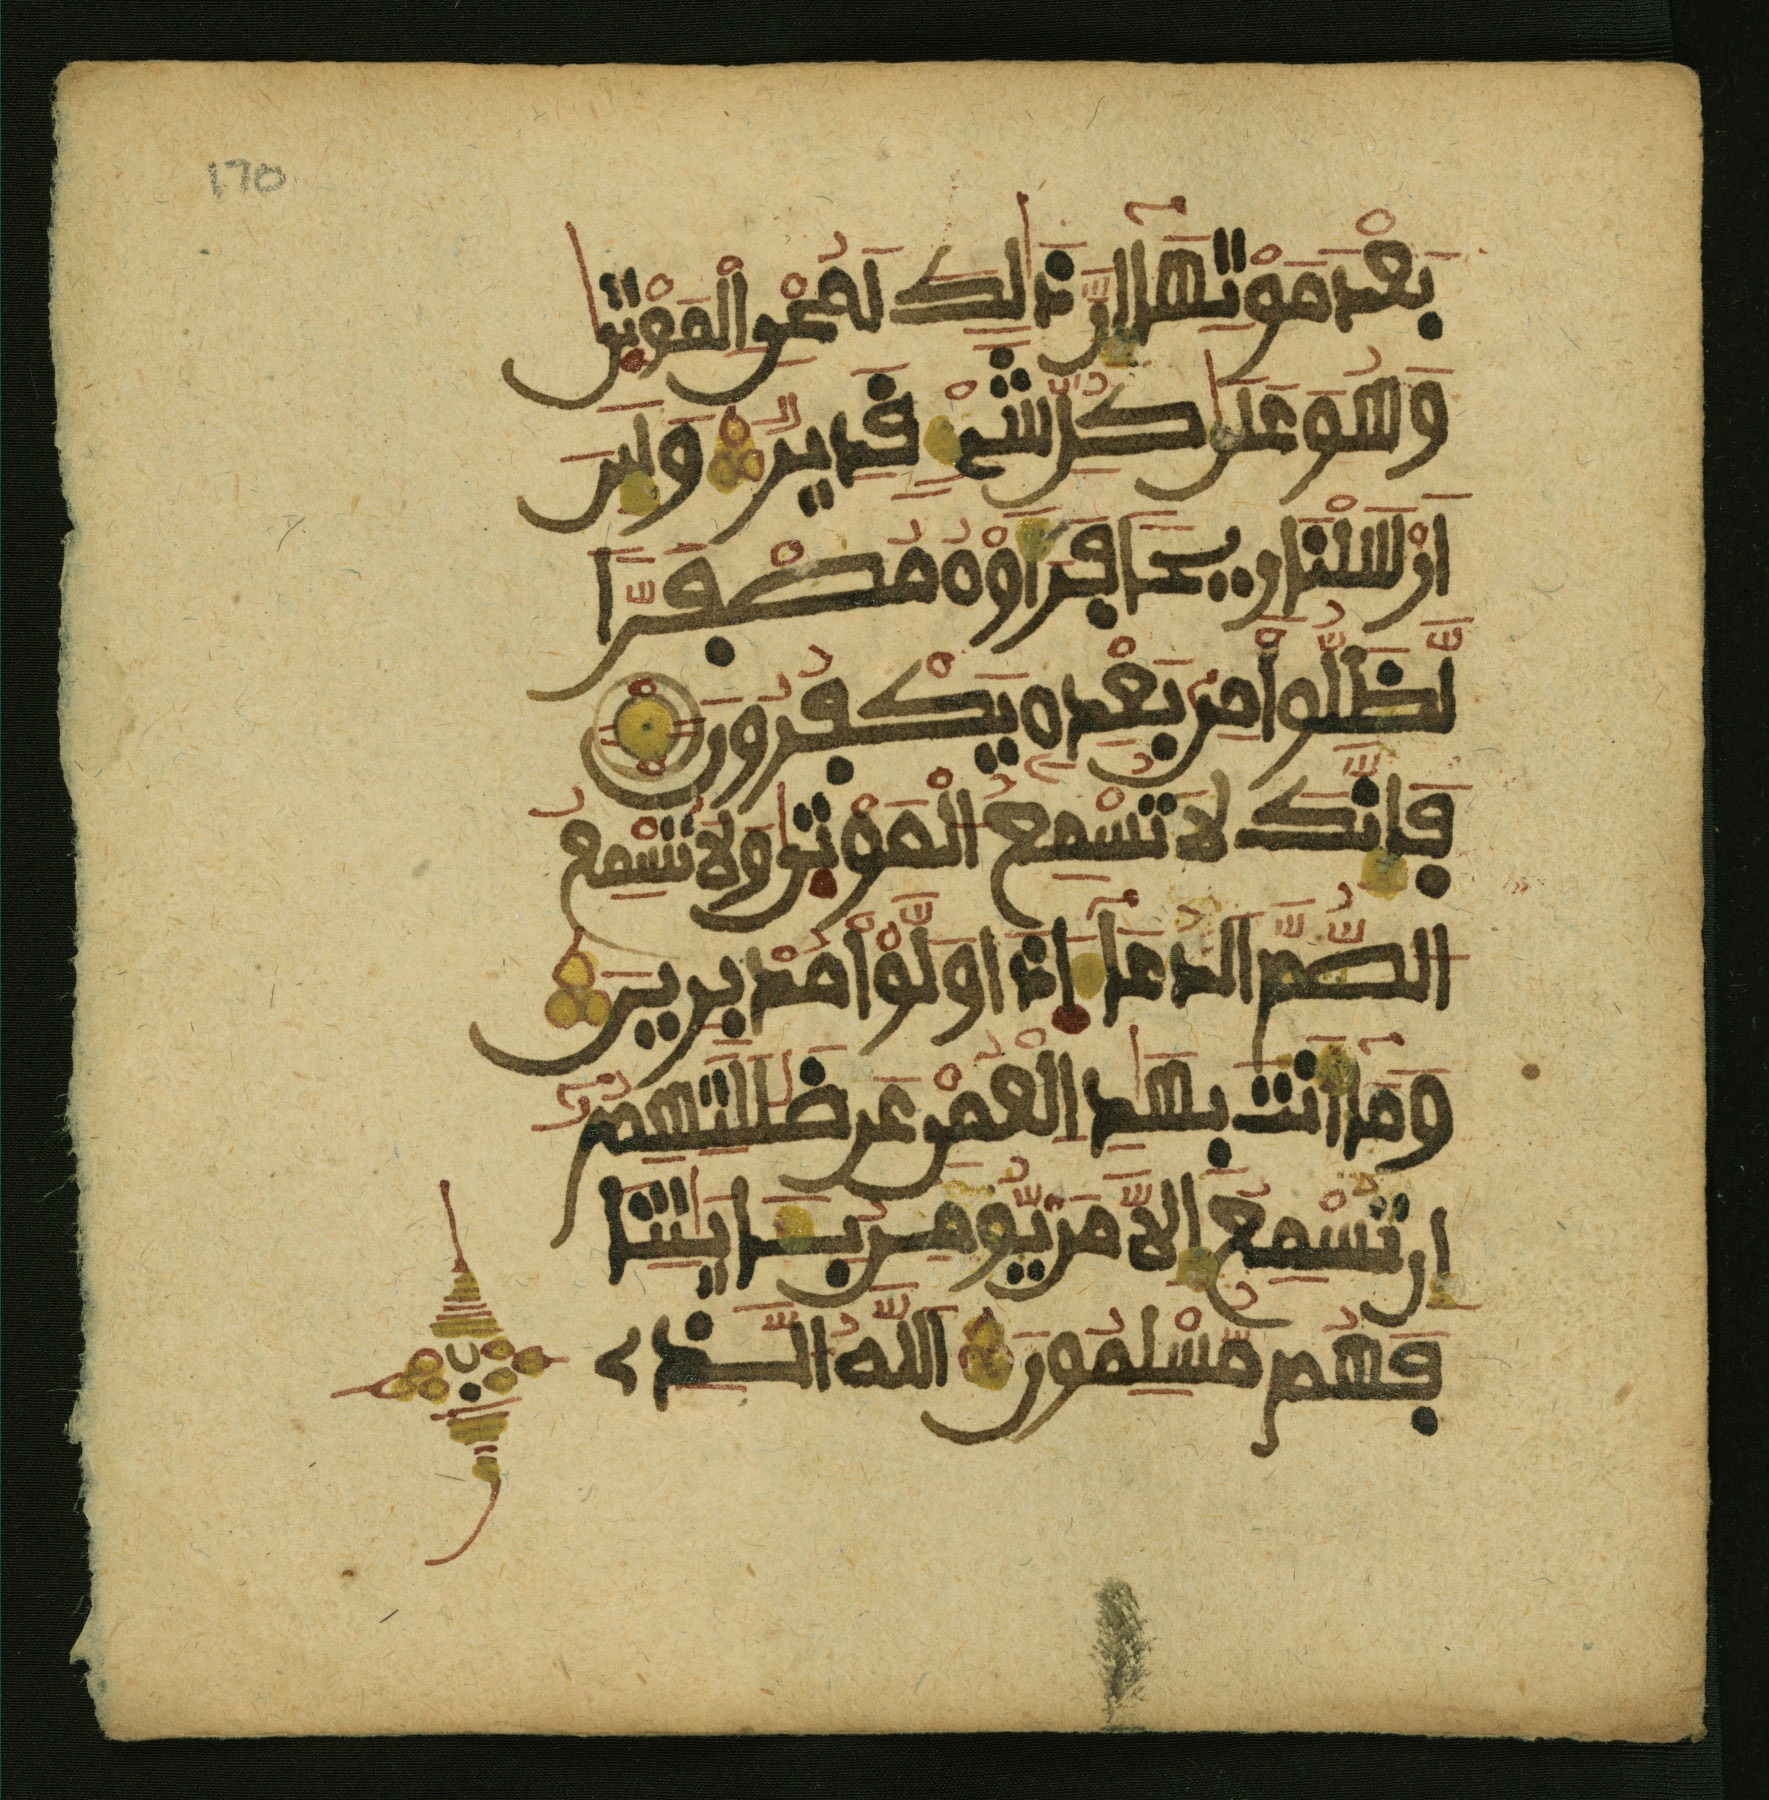 170
بَعْدَ مَوْتِهَآ إِنَّ ذَٰلِكَ لَمُحْيِ الْمَوْتَىٰ
وَهُوَ عَلَىٰ كُلِّ شَيْءٍ قَدِيرٌ وَلَئِنَ
اَرْسَلْنَا رِيحًا فَرَأَوْهُ مُصْفَرًّا
لَّظَلُّواْ مِنۢ بَعْدِهِ يَكْفُرُونَ
فَإِنَّكَ لَا تُسْمِعُ الْمَوْتَىٰ وَلَا تُسْمِعُ
الصُّمَّ الدُّعَآءَ اِذَا وَلَّوْاْ مُدْبِرِينَ
وَمَآ أَنتَ بِهَٰدِ الْعُمْيِ عَن ضَلَٰلَتِهِمُۥٓ
إِن تُسْمِعُ إِلَّا مَن يُّومِنُ بِـَٔايَٰتِنَا
فَهُم مُّسْلِمُونَ اللَّهُ الَّذِے